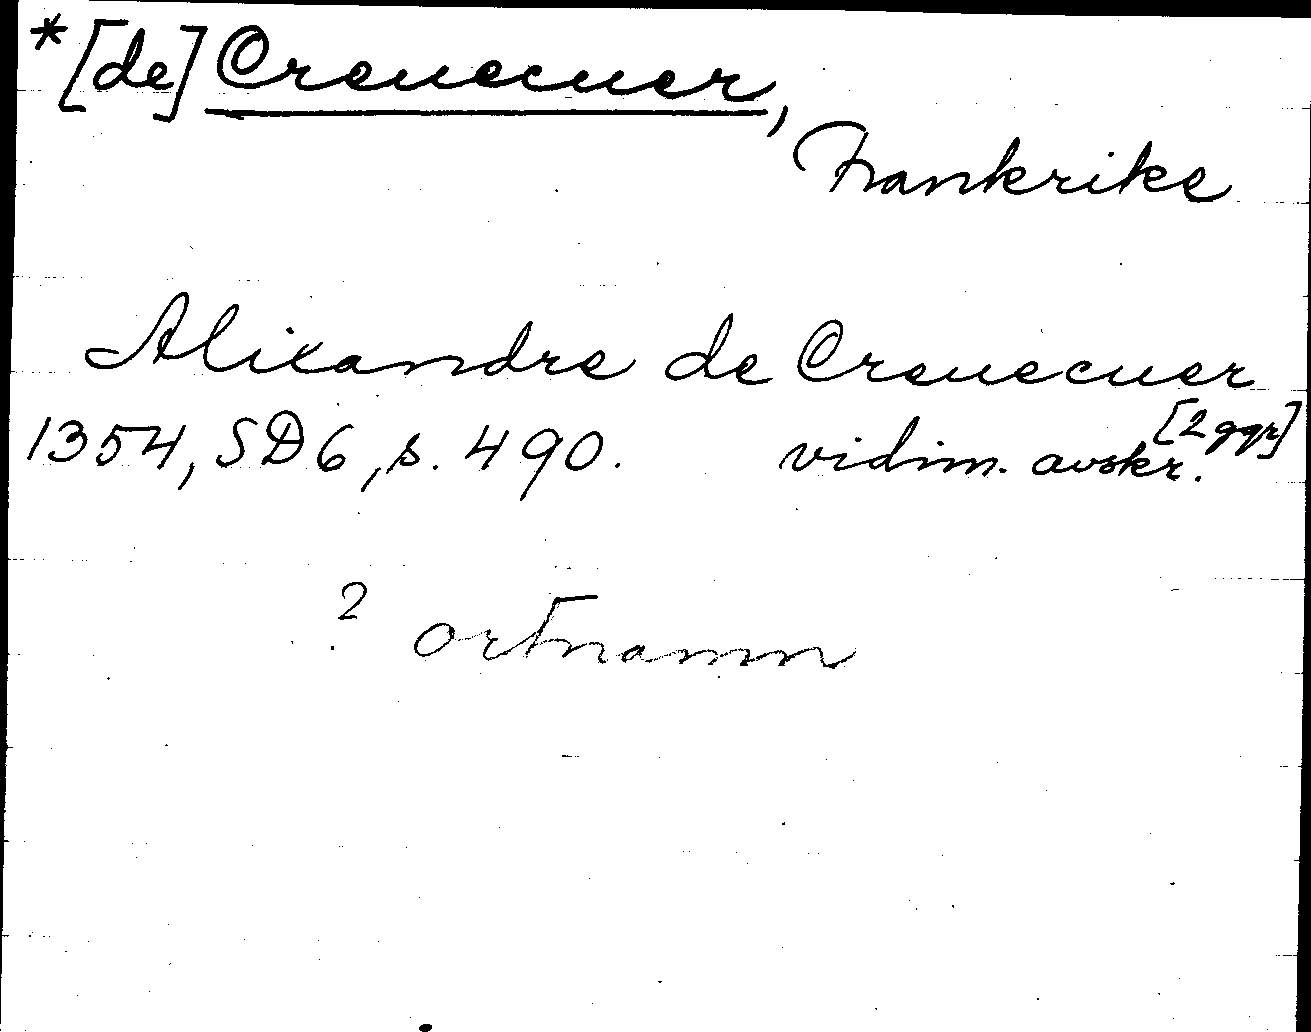 *[de] Creuecuer,
Frankrike
Alixandre de Creuecuer
1354, SD 6, s. 490. vidim. avskr. [2 ggr]
? ortnamn